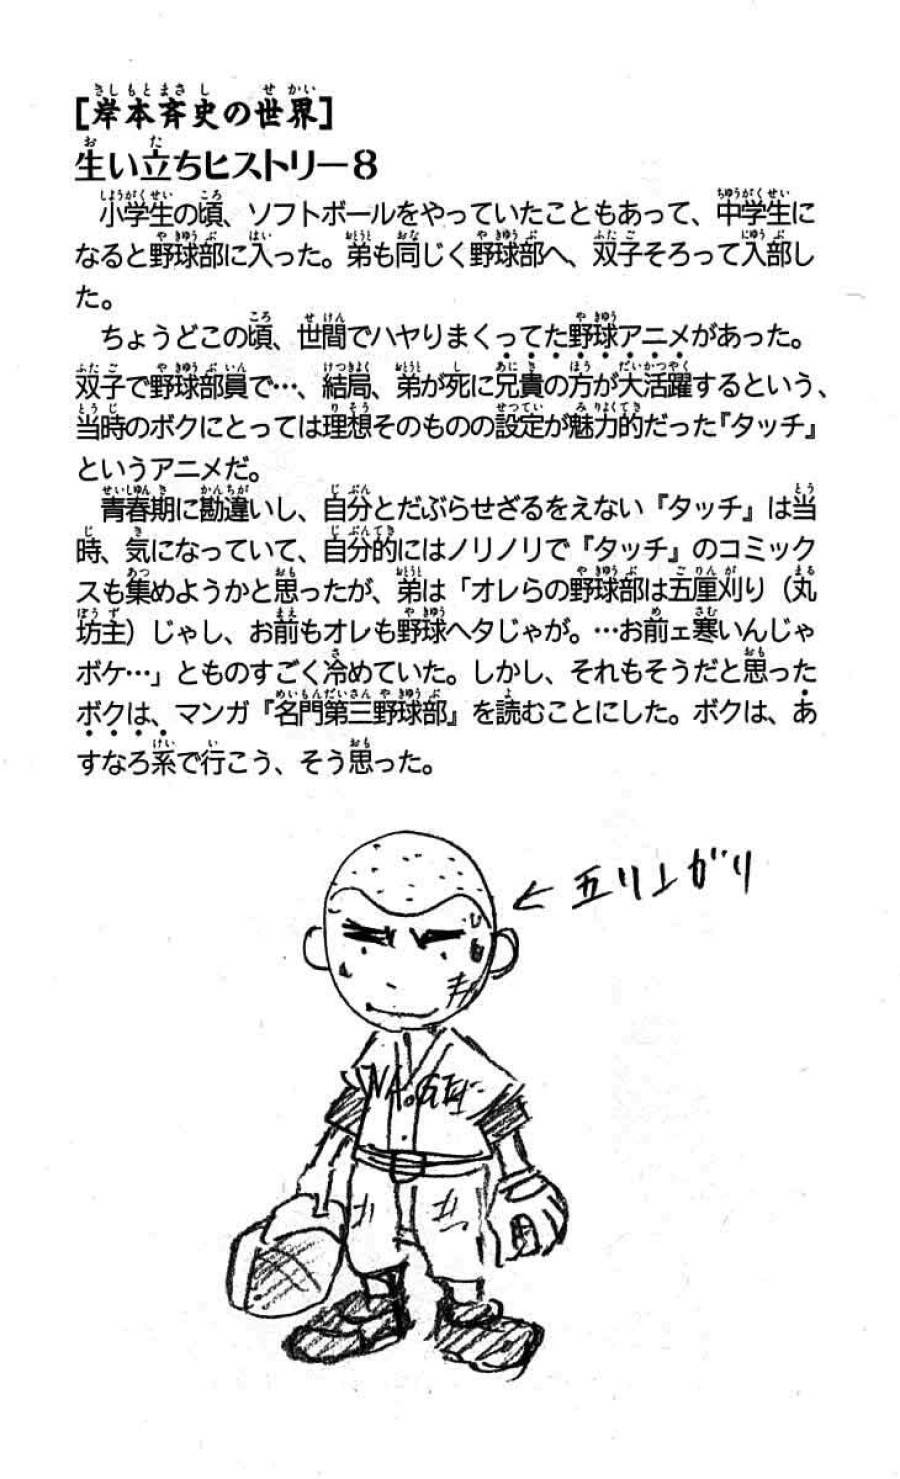 [岸本斉史の世界]
生い立ちヒストリー8
小学生の頃、ソフトボールをやっていたこともあって、中学生に
なると野球部に入った。弟も同じく野球部へ、双子そろって入部し
た。
ちょうどこの頃、世間でハヤりまくってた野球アニメがあった。
双子で野球部員で…、結局、弟が死に兄貴の方が大活躍するという、
当時のボクにとっては理想そのものの設定が魅力的だった『タッチ』
というアニメだ。
青春期に勘違いし、自分とだぶらせざるをえない『タッチ』は当
時、気になっていて、自分的にはノリノリで『タッチ』のコミック
スも集めようかと思ったが、弟は「オレらの野球部は五厘刈り（丸
坊主）じゃし、お前もオレも野球ヘタじゃが。…お前ェ寒いんじゃ
ボケ…」とものすごく冷めていた。しかし、それもそうだと思った
ボクは、マンガ『名門第三野球部』を読むことにした。ボクは、あ
すなろ系で行こう、そう思った。
← 五リンがり